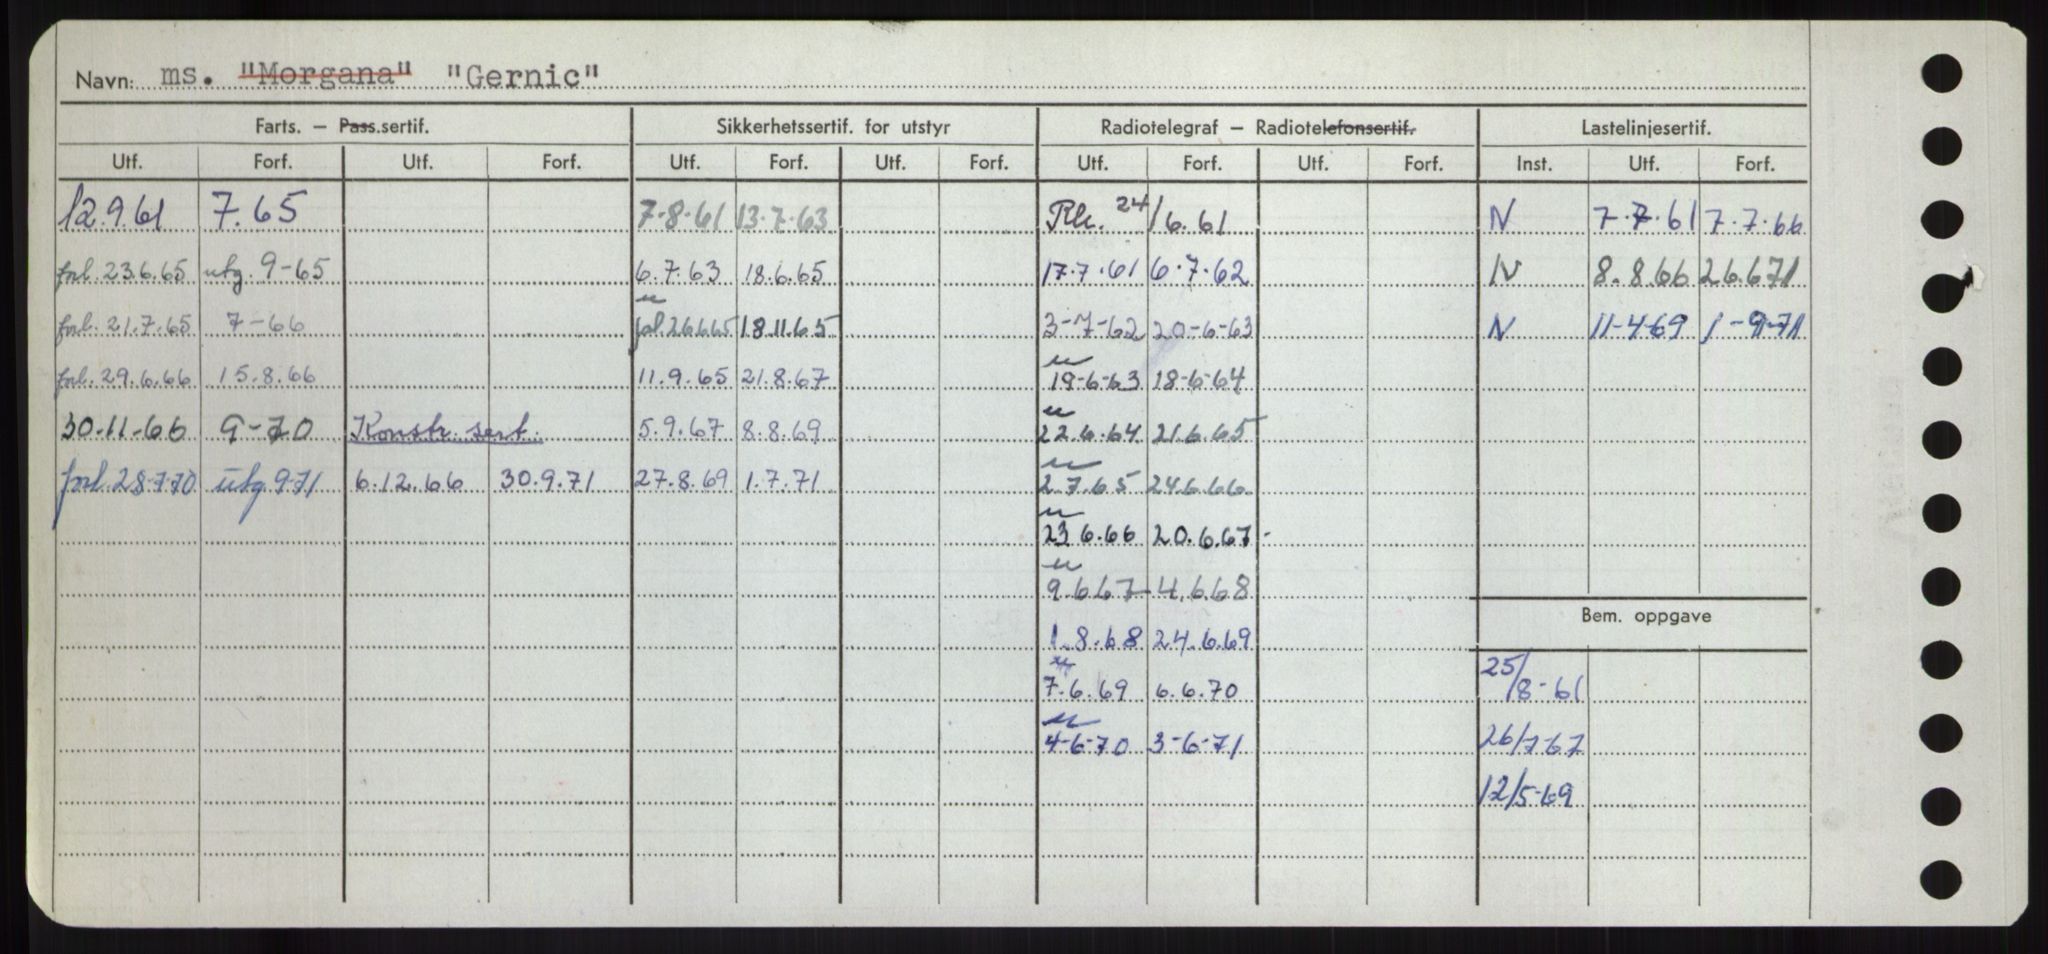 Navn: ms. "Morgana" "Gernic"
Farts. — Pass.sertif. Sikkerhetssertif. for utstyr Radiotelegraf — Radiotelefonsertif. Lastelinjesertif.
Utf. Forf. Utf. Forf. Utf. Forf. Utf. Forf. Utf. Forf. Utf. Forf. Inst. Utf. Forf.
12.9.61 7.65 7-8-61 13-7-63 Rk. 24/6.61 N 7.7.61 7.7.66
forl. 23.6.65 utg. 9-65 6.7.63 18.6.65 17.7.61 6.7.62 N 8.8.66 26.671
forl. 21.7.65 7-66 forl. 26.6.65 18.11.65 3-7-62 20-6-63 N 11-4-69 1-9-71
forl. 29.6.66 15.8.66 11.9.65 21.8.67 19-6-63 18-6-64
30-11-66 9-70 Konstr. sert. 5.9.67 8.8.69 22.6.64 21.6.65
forl. 28-7-70 utg. 9-71 6.12.66 30.9.71 27.8.69 1.7.71 2.7.65 24.6.66
23.6.66 20.6.67
9.6.67 4.6.68
Bem. oppgave
1.8.68 24.6.69
7.6.69 6.6.70 25/8-61
4-6-70 3-6-71 26/7-67
12/5-69